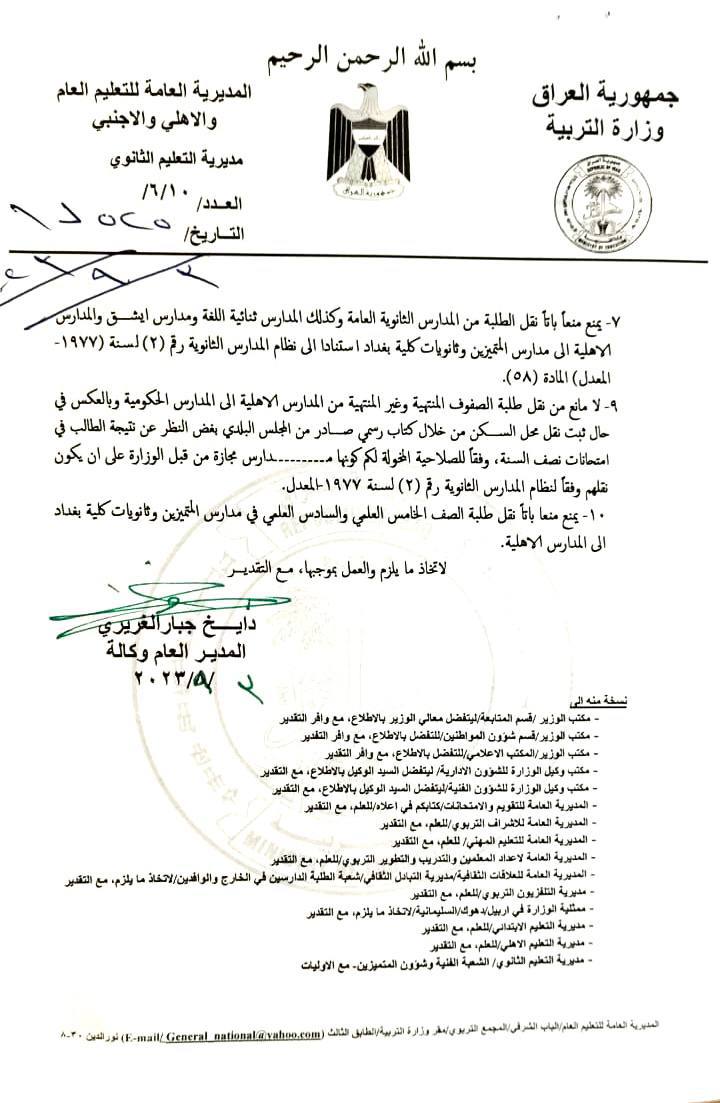 بسم الله الرحمن الرحيم
جمهورية العراق
وزارة التربية
المديرية العامة للتعليم العام
والاهلي والاجنبي
مديرية التعليم الثانوي
العدد/ ٦/١٠/
التاريخ/
جمهورية العراق
REPUBLIC OF IRAQ
MINISTRY OF EDUCATION
٧- يمنع منعاً باتاً نقل الطلبة من المدارس الثانوية العامة وكذلك المدارس ثنائية اللغة ومدارس ايشـق والمدارس
الاهلية الى مدارس المتميزين وثانويات كلية بغداد استنادا الى نظام المدارس الثانوية رقم (٢) لسنة (١٩٧٧-
المعدل) المادة (٥٨).
٩- لا مانع من نقل طلبة الصفوف المنتهية وغير المنتهية من المدارس الاهلية الى المدارس الحكومية وبالعكس في
حال ثبت نقل محل السكن من خلال كتاب رسمي صادر من المجلس البلدي بغض النظر عن نتيجة الطالب في
امتحانات نصف السنة، وفقاً للصلاحية المخولة لكم كونها مـــــــــدارس مجازة من قبل الوزارة على ان يكون
نقلهم وفقاً لنظام المدارس الثانوية رقم (٢) لسنة ١٩٧٧-المعدل.
١٠- يمنع منعا باتاً نقل طلبة الصف الخامس العلمي والسادس العلمي في مدارس المتميزين وثانويات كلية بغداد
الى المدارس الاهلية.
لاتخاذ ما يلزم والعمل بموجبها، مـع التقديـر
دايـــخ جبار الغريري
المدير العام وكالة
٣ /٩/ ٢٠٢٣
نسخة منه الى
- مكتب الوزير / قسم المتابعة/ليتفضل معالي الوزير بالاطلاع، مع وافر التقدير
- مكتب الوزير/قسم شؤون المواطنين/للتفضل بالاطلاع، مع وافر التقدير
- مكتب الوزير/المكتب الاعلامي/للتفضل بالاطلاع، مع وافر التقدير
- مكتب وكيل الوزارة للشؤون الادارية/ ليتفضل السيد الوكيل بالاطلاع، مع التقدير
- مكتب وكيل الوزارة للشؤون الفنية/ليتفضل السيد الوكيل بالاطلاع، مع التقدير
- المديرية العامة للتقويم والامتحانات/كتابكم في اعلاه/للعلم، مع التقدير
- المديرية العامة للاشراف التربوي/للعلم، مع التقدير
- المديرية العامة للتعليم المهني/ للعلم، مع التقدير
- المديرية العامة لاعداد المعلمين والتدريب والتطوير التربوي/للعلم، مع التقدير
- المديرية العامة للعلاقات الثقافية/مديرية التبادل الثقافي/شعبة الطلبة الدارسين في الخارج والوافدين/لاتخاذ ما يلزم، مع التقدير
- مديرية التلفزيون التربوي/للعلم، مع التقدير
- ممثلية الوزارة في اربيل/دهوك/السليمانية/لاتخاذ ما يلزم، مع التقدير
- مديرية التعليم الابتدائي/للعلم، مع التقدير
- مديرية التعليم الاهلي/للعلم، مع التقدير
- مديرية التعليم الثانوي/ الشعبة الفنية وشؤون المتميزين- مع الاوليات
المديرية العامة للتعليم العام/الباب الشرقي/المجمع التربوي/مقر وزارة التربية/الطابق الثالث (E-mail/ General_national@yahoo.com) نورالدين ٣٠-٨